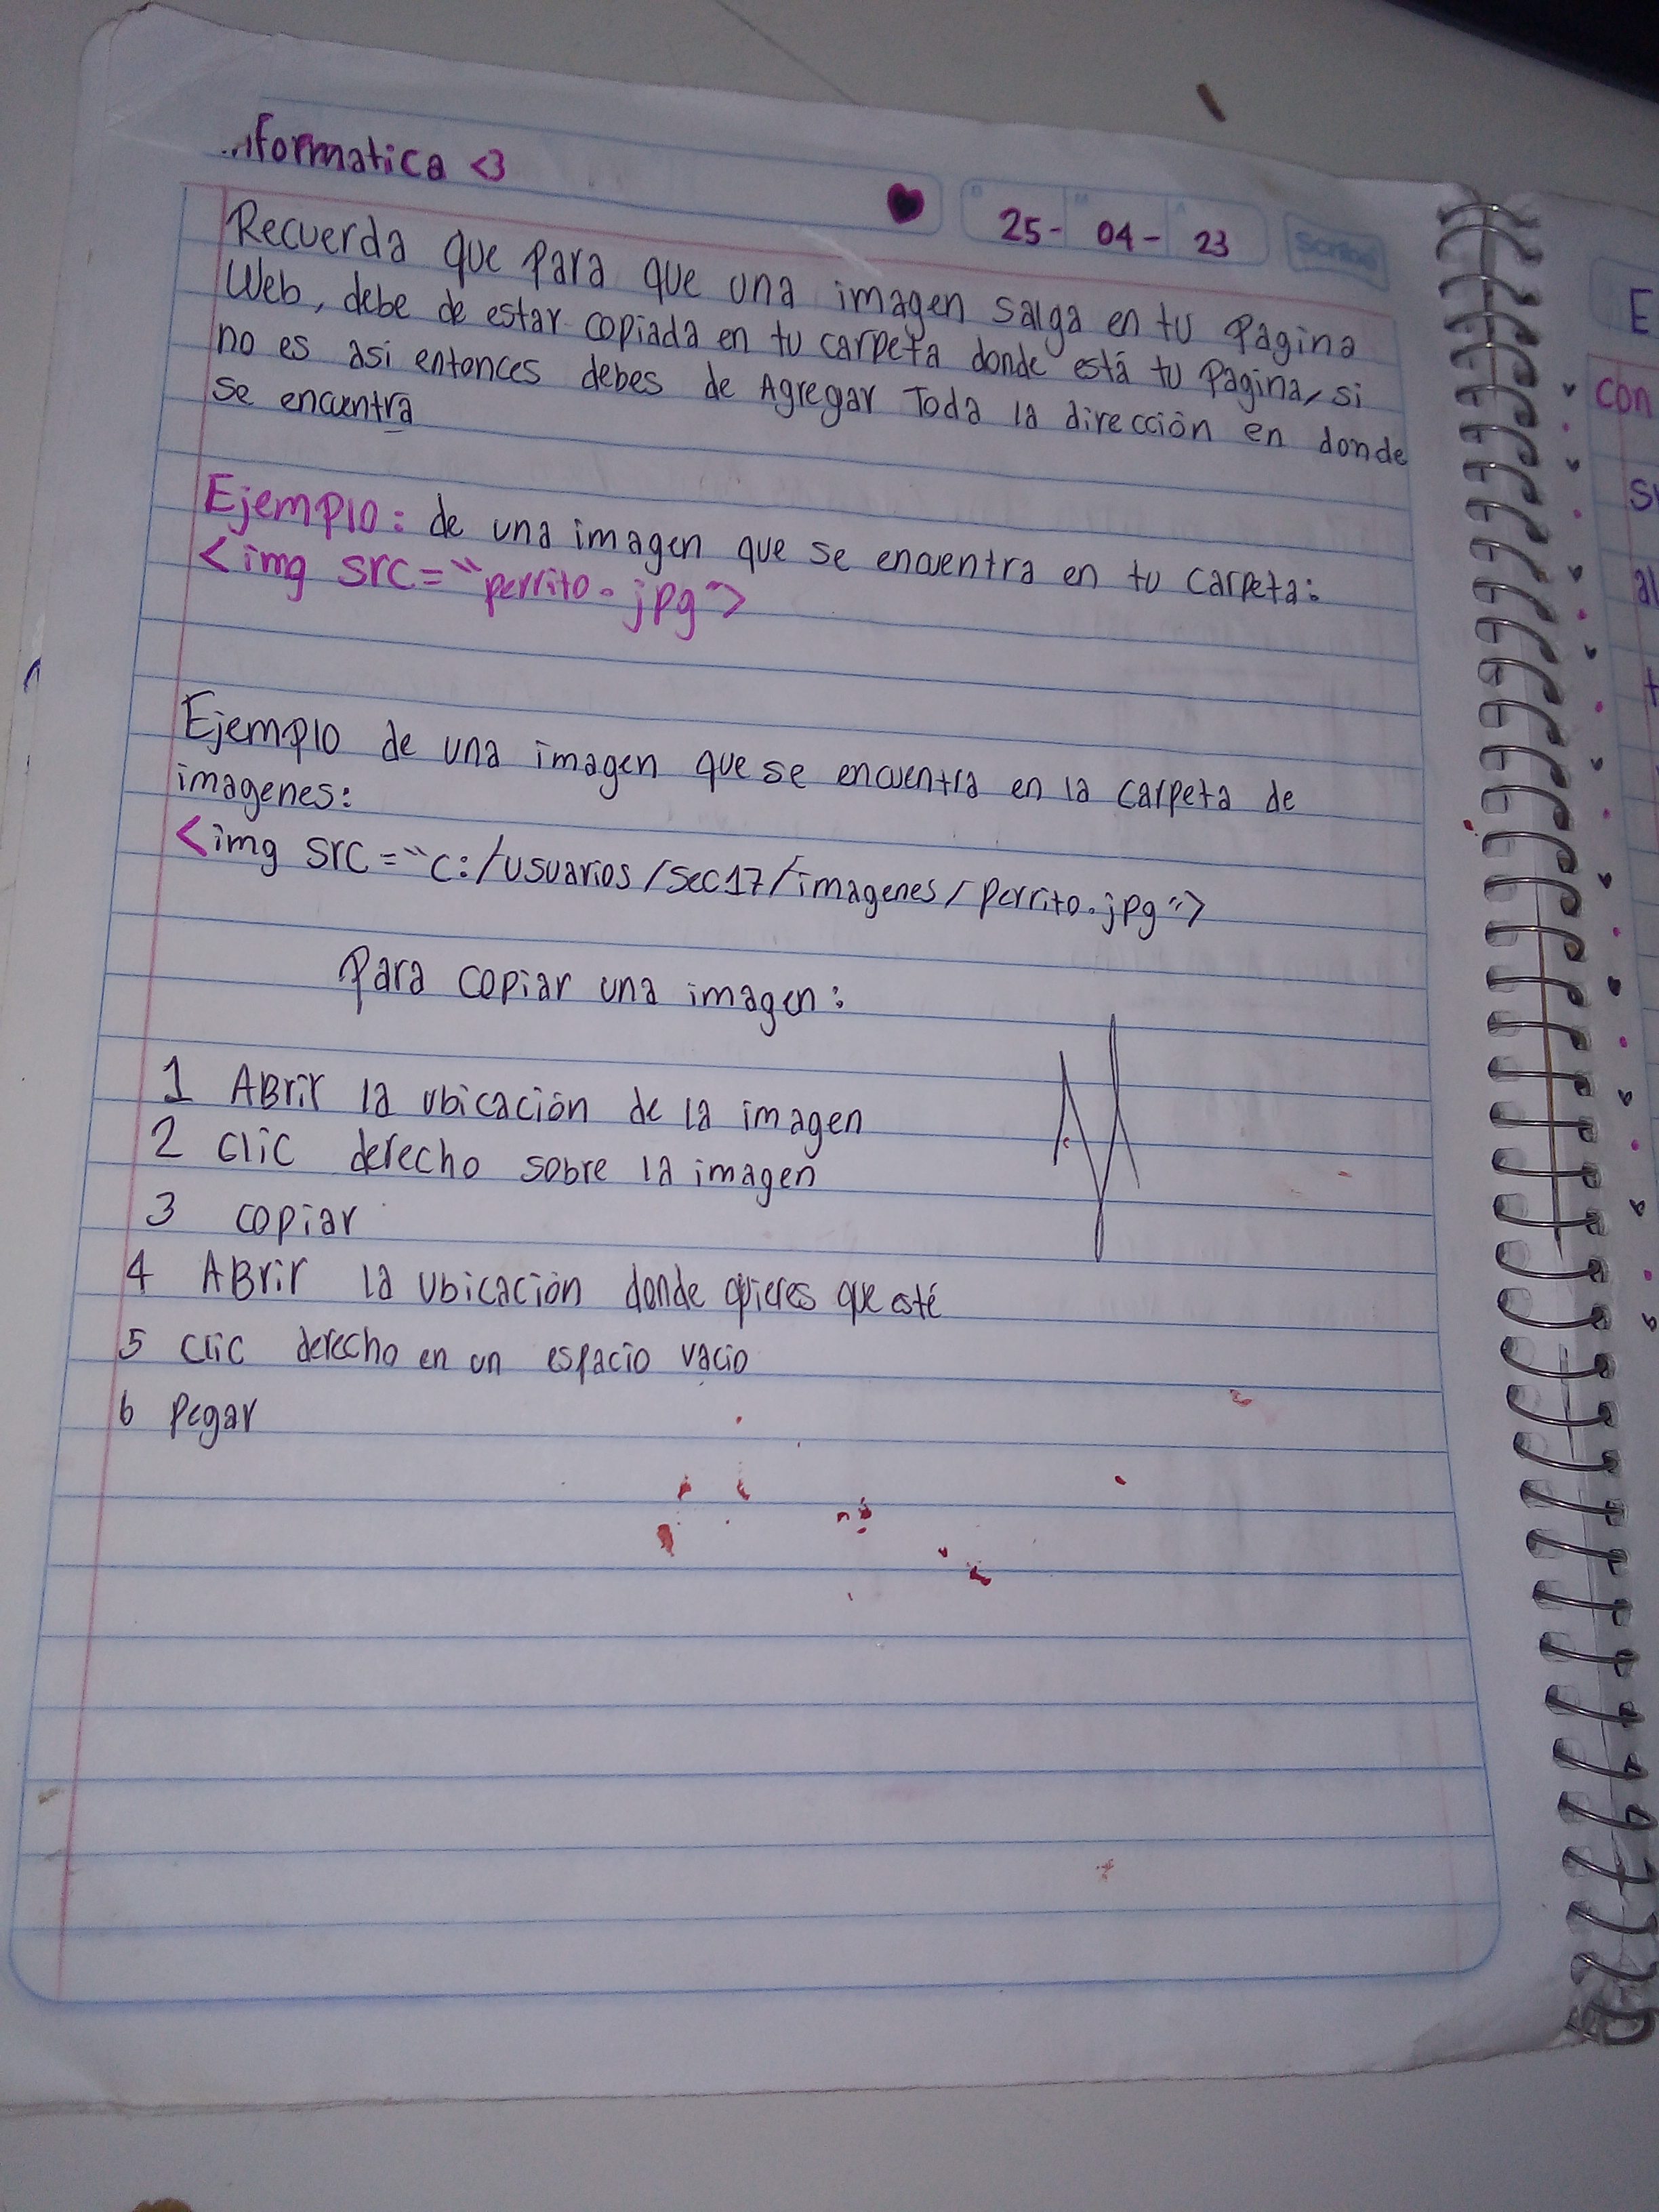 informatica <3
25- 04- 23
Scribe
Recuerda que para que una imagen salga en tu Pagina
Web, debe de estar copiada en tu carpeta donde está tu Pagina, si
no es asi entonces debes de Agregar Toda la dirección en donde
se encuentra
Ejemplo: de una imagen que se encuentra en tu carpeta:
<img src="perrito.jpg">
Ejemplo de una imagen que se encuentra en la carpeta de
imagenes:
<img src="c:/usuarios/sec17/imagenes/perrito.jpg">
Para copiar una imagen:
1 ABrir la ubicación de la imagen
2 clic derecho sobre la imagen
3 copiar
4 ABrir la ubicación donde quieres que esté
5 clic derecho en un espacio vacio
6 Pegar
E
con